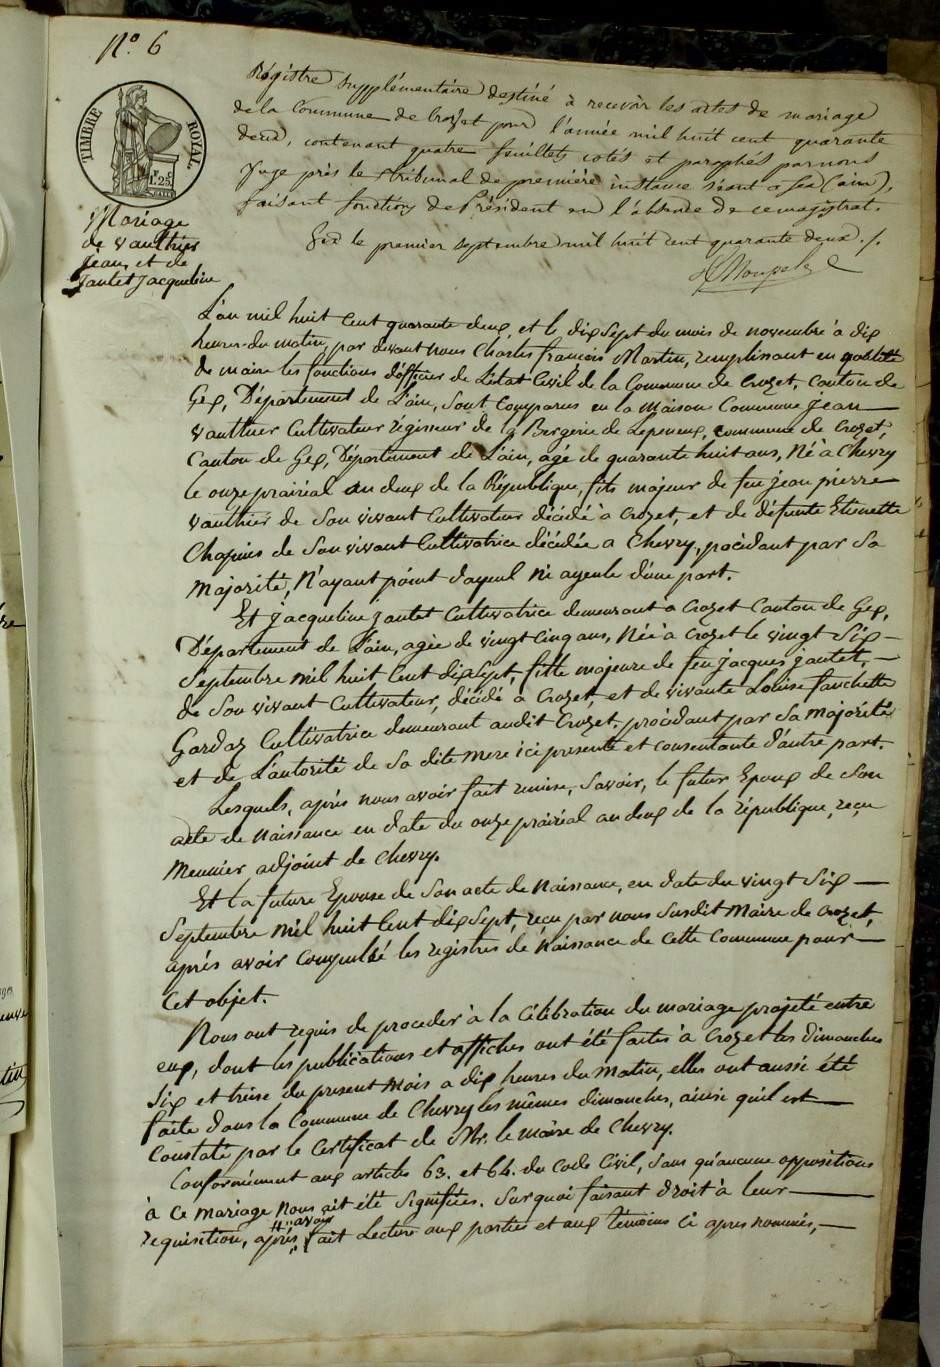 N.º 6
TIMBRE ROYAL.
1.25
Régistre supplémentaire destiné à recevoir les actes de mariage
de la Commune de Crozet pour l'année mil huit cent quarante
deux, contenant quatre feuillets cotés et paraphés par nous
Juge près le tribunal de première instance séant a Gex (ain),
faisant fonctions de Président en l'absence de ce magistrat.
Gex le premier septembre mil huit cent quarante deux ./.
Mariage
de Vauthier
Jean, et de
Jantet Jacqueline
L'an mil huit Cent quarante deux, et le dix Sept du mois de novembre à dix
heures du matin, par devant nous Charles françois Martin, remplissant en qualité
de maire les fonctions d'officier de L'état Civil de la Commune de Crozet, canton de
Gex, Département de L'ain, Sont Comparus en la Maison Commune jean
Vauthier Cultivateur régisseur de la Bergerie de , commune de Crozet,
Canton de Gex, Département de L'ain, agé de quarante huit ans, Né à Chevry
le onze prairial an deux de la République, fils majeur de feu jean pierre
Vauthier de Son vivant Cultivateur décédé à Crozet, et de défunte Etiennette
Chapuis de Son vivant Cultivatrice décédée a Chevry, procédant par Sa
Majorité, N'ayant point d'ayeul ni ayeule d'une part.
Et Jacqueline Jantet Cultivatrice demeurant à Crozet Canton de Gex,
Département de L'ain, agée de vingt Cinq ans, Née à Crozet le vingt Six
Septembre mil huit Cent dix Sept, fille majeure de feu Jacques jantet,
de Son vivant Cultivateur, décédé à Crozet, et de vivante Louise fanchette
Gardaz Cultivatrice demeurant audit Crozet, procédant par Sa Majorité
et de L'autorité de Sa dite mere ici presente et consentante d'autre part.
Lesquels, après nous avoir fait remise, Savoir, le futur Epoux de Son
acte de Naissance en date du onze prairial an deux de la république, reçu
Meunier adjoint de Chevry.
Et la future Epouse de Son acte de Naissance, en date du vingt Six
Septembre mil huit Cent dix Sept, reçu par nous Susdit Maire de Crozet,
après avoir Compulsé les registres de Naissance de cette Commune pour
Cet objet.
Nous ont requis de proceder à la Célébration du mariage projeté entre
eux, dont les publications et affiches ont été faites à Crozet les dimanches
Six et treize du present Mois a dix heures du Matin, elles ont aussi été
faite dans la Commune de Chevry les mêmes dimanches, ainsi qu'il est
Constaté par le Certificat de Mr. le maire de Chevry.
Conformément aux articles 63. et 64. du Code Civil, Sans qu'aucune oppositions
à ce Mariage Nous ait été Signifiées. Sur quoi faisant droit à leur
requisition, après "avoir" fait Lecture aux parties et aux témoins Ci apres nommés,